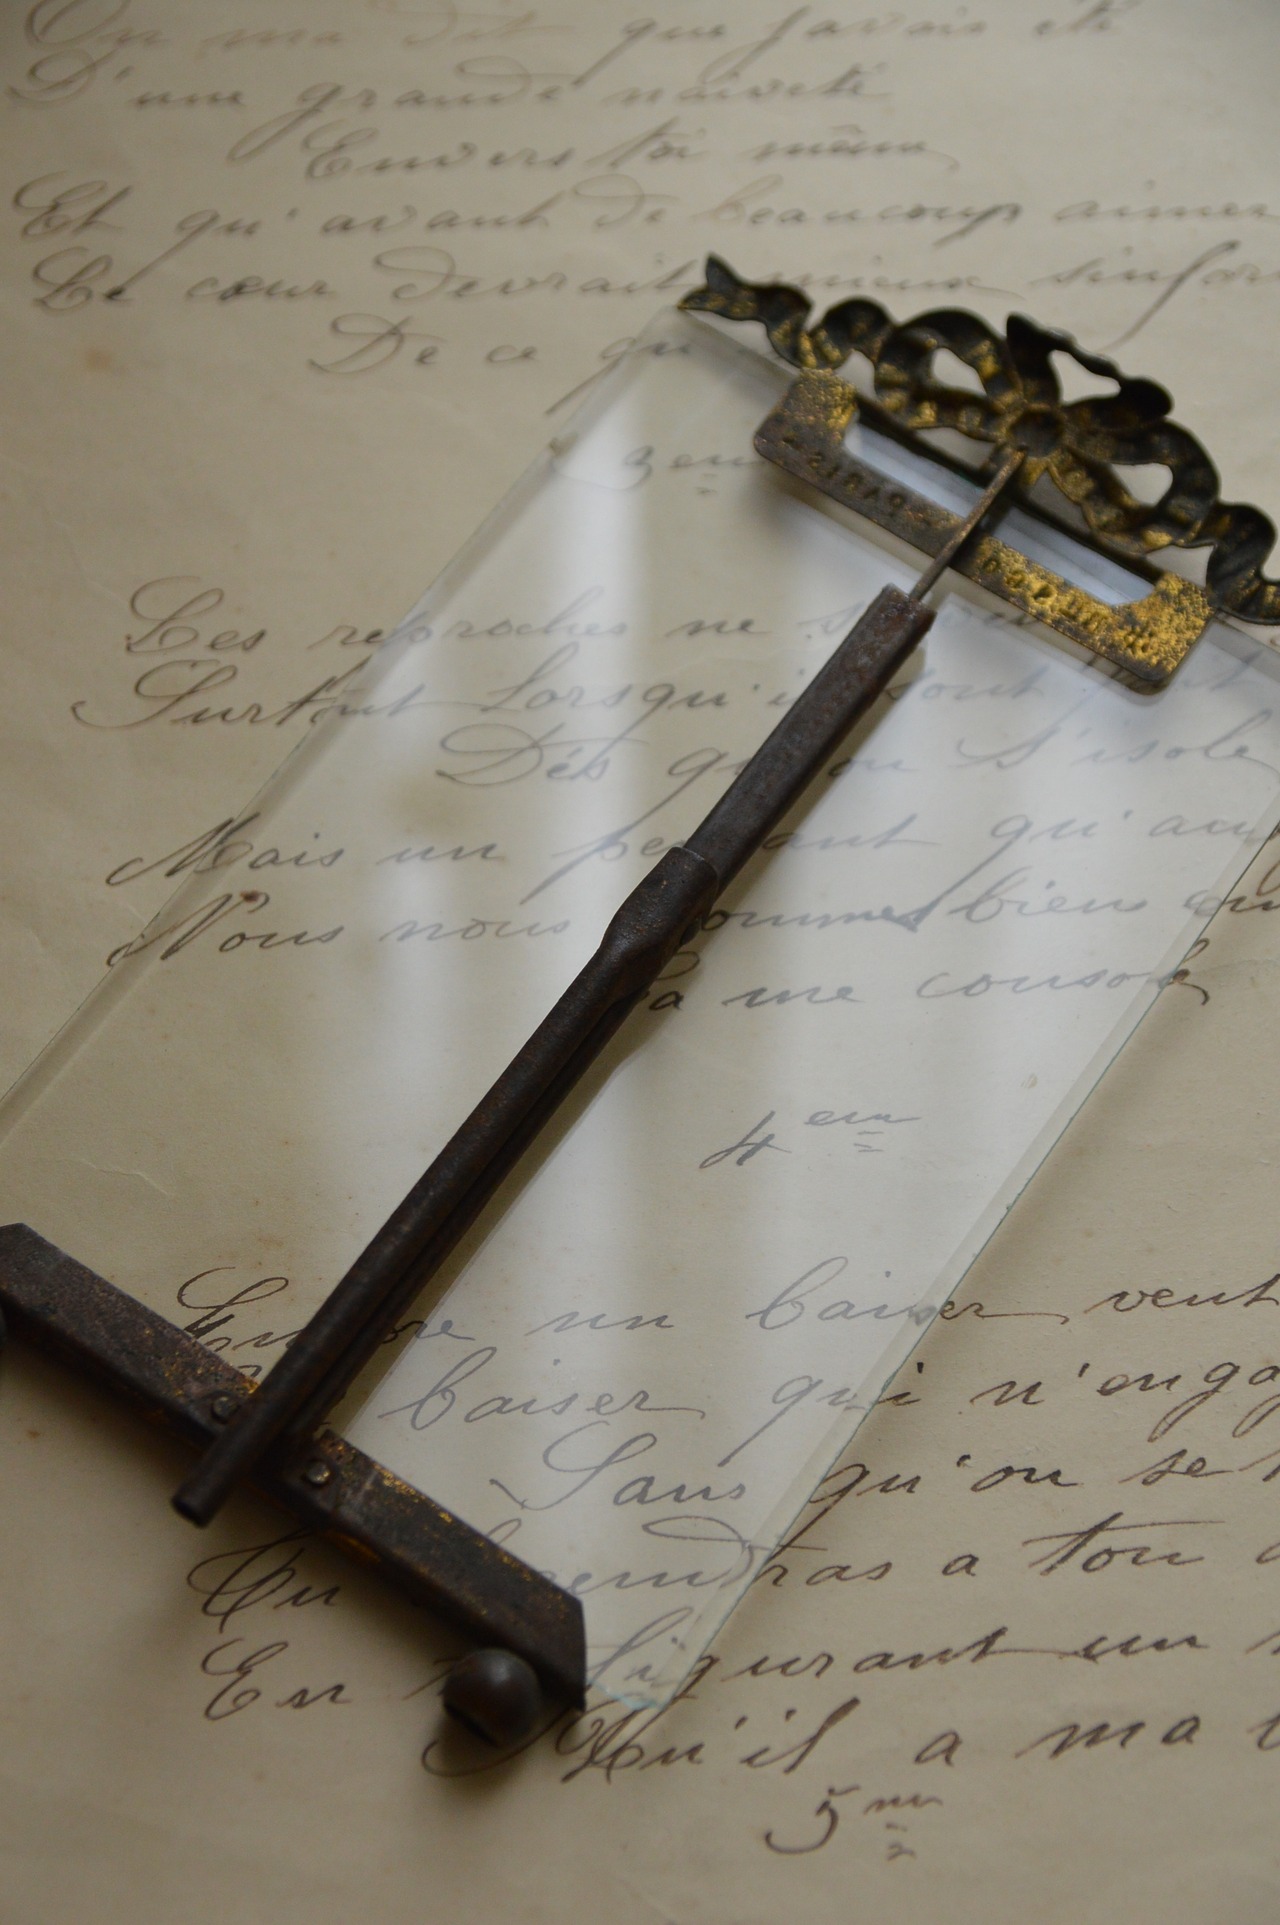 On m'a dit que j'avais été
D'une grande naïveté
Envers toi même
Et qu'avant de beaucoup aimer
Le cœur devrait mieux s'infor
De ce qu
3em
Les reproches ne s
Surtout Lorsqu'i sont
Dés qu on s'isole
Mais un pe ant qu'au
Nous nous ommes bien
a me console
4em
un baiser vent
baiser qui n'enga
Sans qu'on se
Tu endras a ton
En figurant un
Qu'il a ma
5me
PARIS